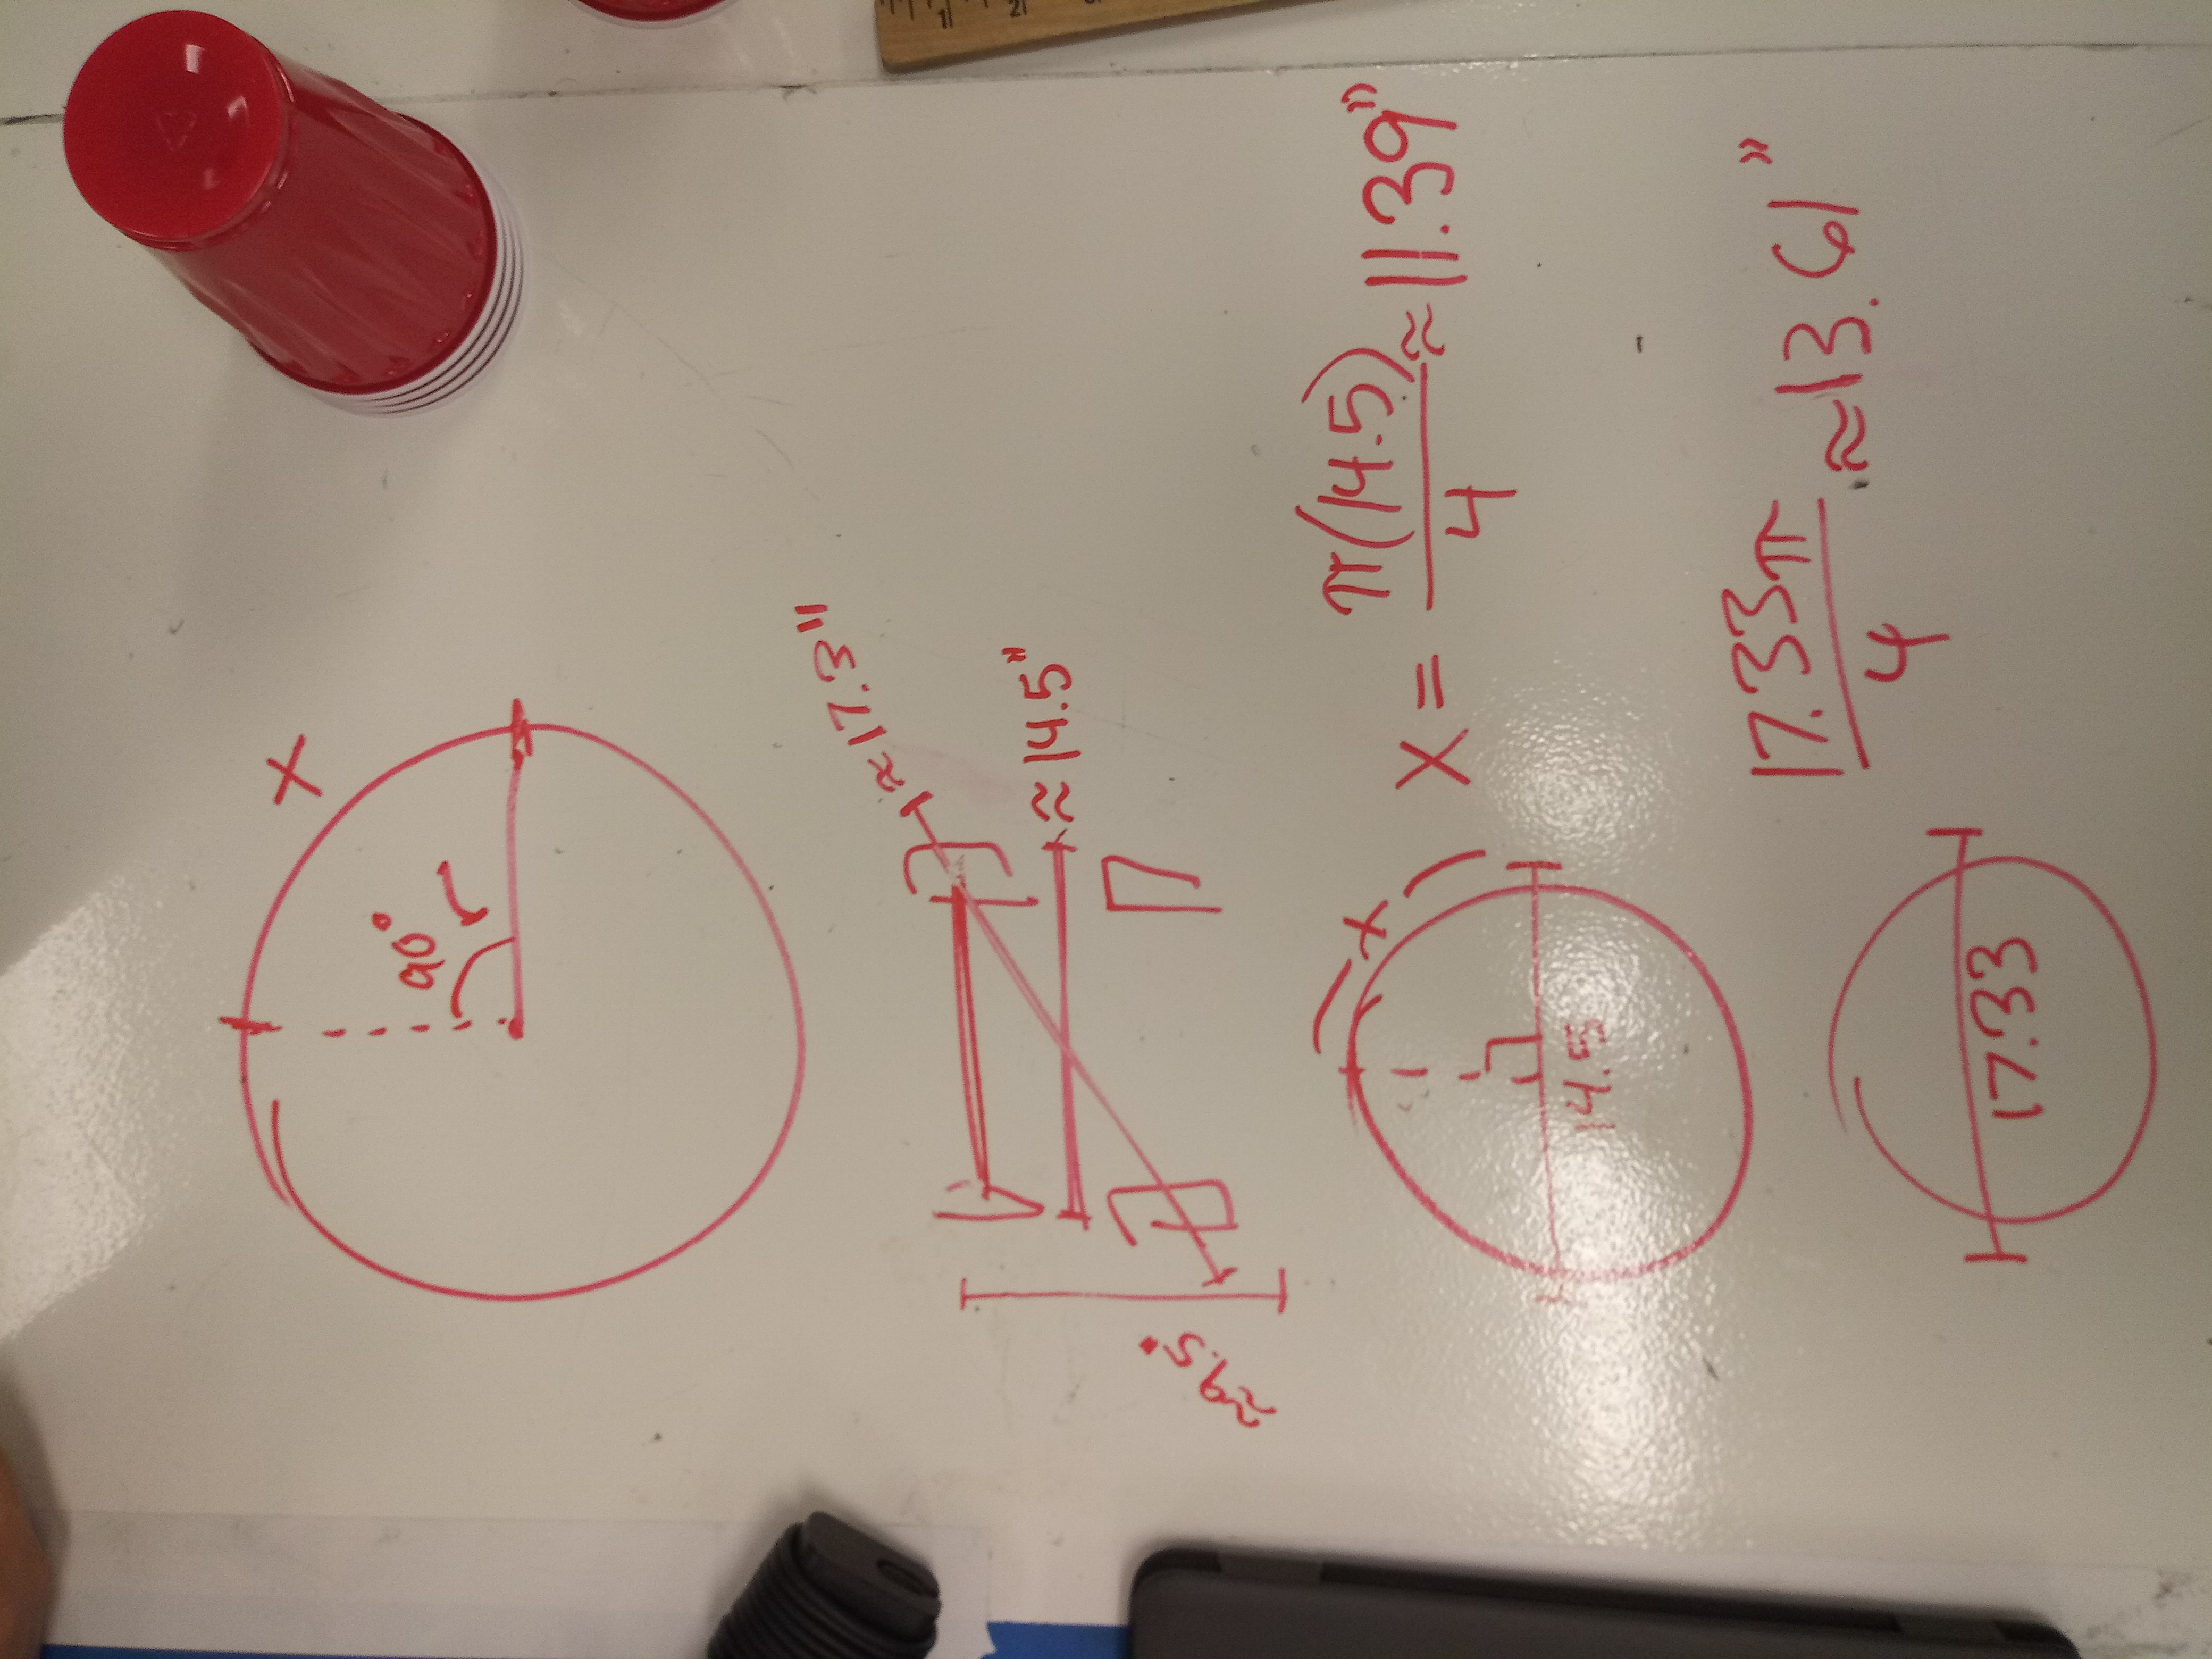 x
90°
r
≈17.3"
≈14.5"
≈9.5"
x
x = π(14.5)/4 ≈ 11.39"
14.5
17.33π/4 ≈ 13.61"
17.33